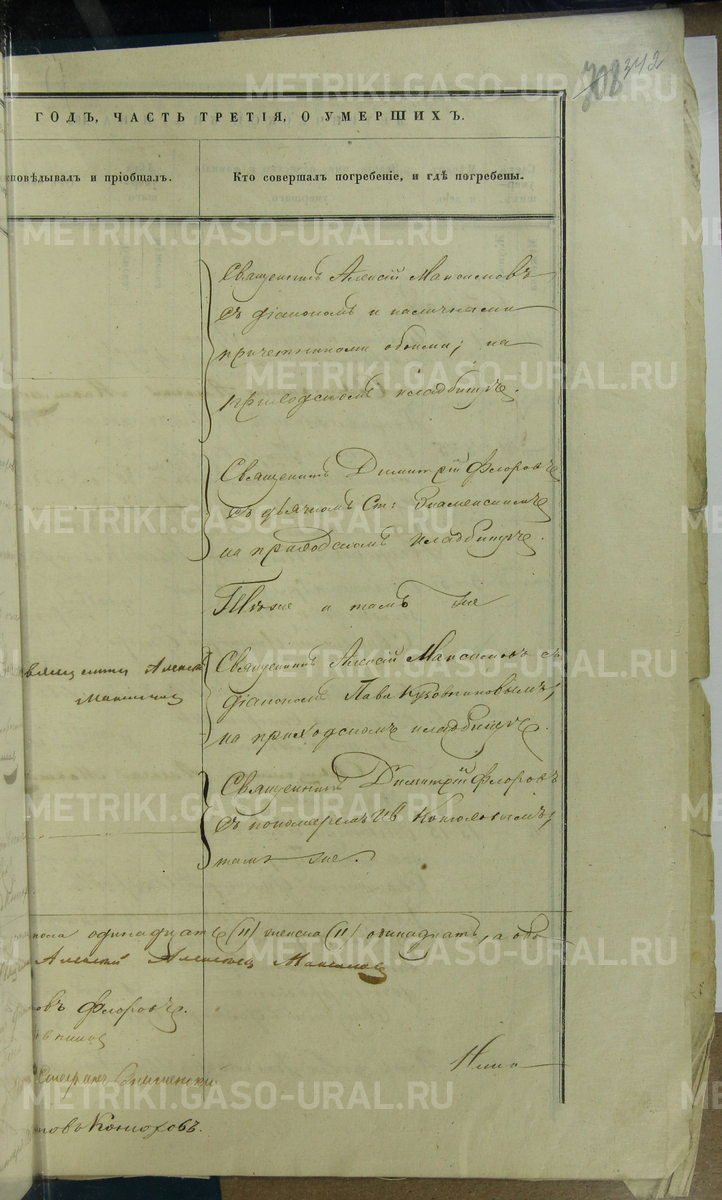 708 342
ГОДЪ, ЧАСТЬ ТРЕТІЯ, О УМЕРШИХЪ.
исповѣдывалъ и пріобщалъ.
Кто совершалъ погребеніе, и гдѣ погребены.
Священникъ Алексій Максимовъ
съ діакономъ и наличными
причетниками обоими, на
приходскомъ кладбищѣ.
Священникъ Димитрій Флоровъ
съ дьячкомъ Ст: Знаменскимъ
на приходскомъ кладбищѣ.
Тѣже и тамъ же
Священникъ Алексій
Максимовъ
Священникъ Алексій Максимовъ съ
діакономъ Пав.
на приходскомъ кладбищѣ.
Священникъ Димитрій Флоровъ
съ пономаремъ Ив
тамъ же.
одинадцать (11) женска (11) одинадцать, а обо
Алексій Алексѣевъ Максимовъ
Флоровъ.
Стефанъ Знаменскій
METRIKI.GASO-URAL.RU